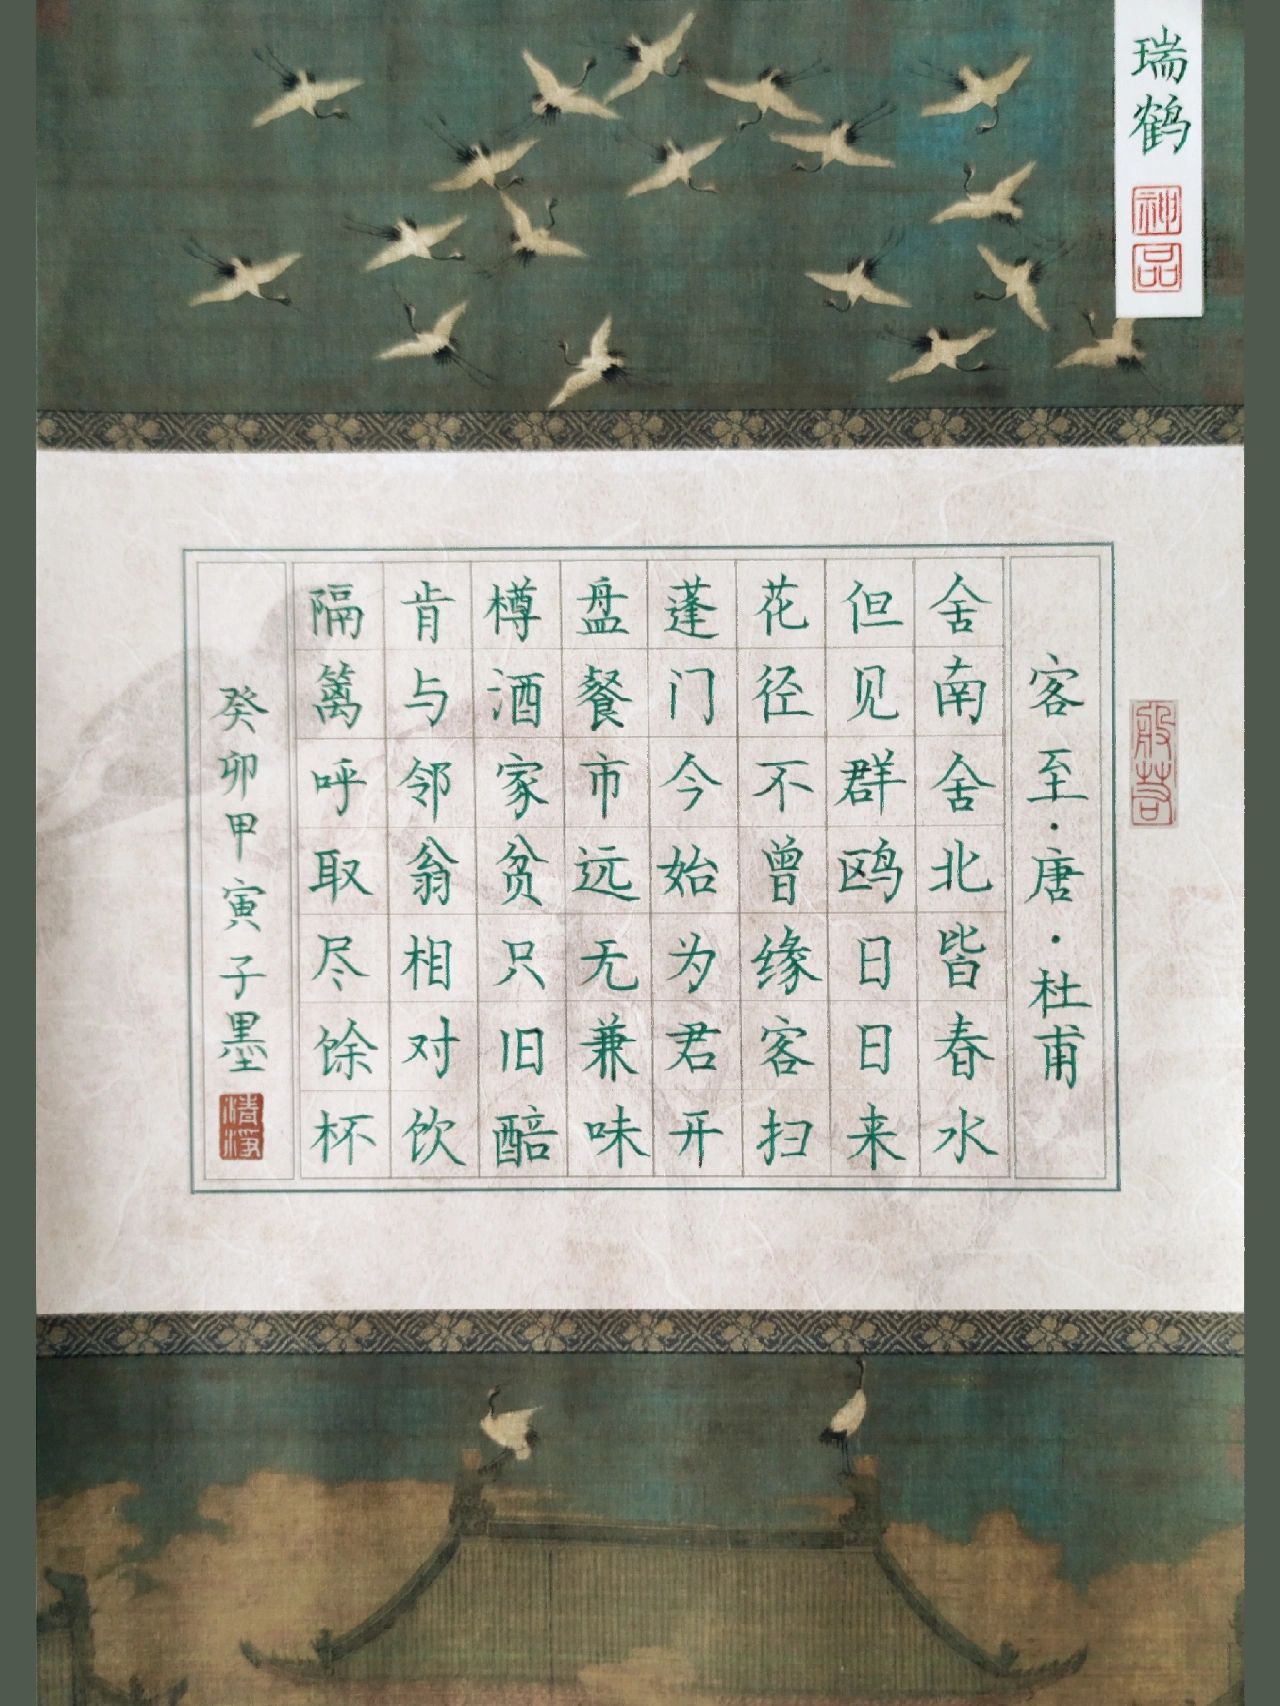 瑞鹤
神品
客至·唐·杜甫
舍南舍北皆春水
但见群鸥日日来
花径不曾缘客扫
蓬门今始为君开
盘餐市远无兼味
樽酒家贫只旧醅
肯与邻翁相对饮
隔篱呼取尽馀杯
癸卯甲寅子墨
清净
般若